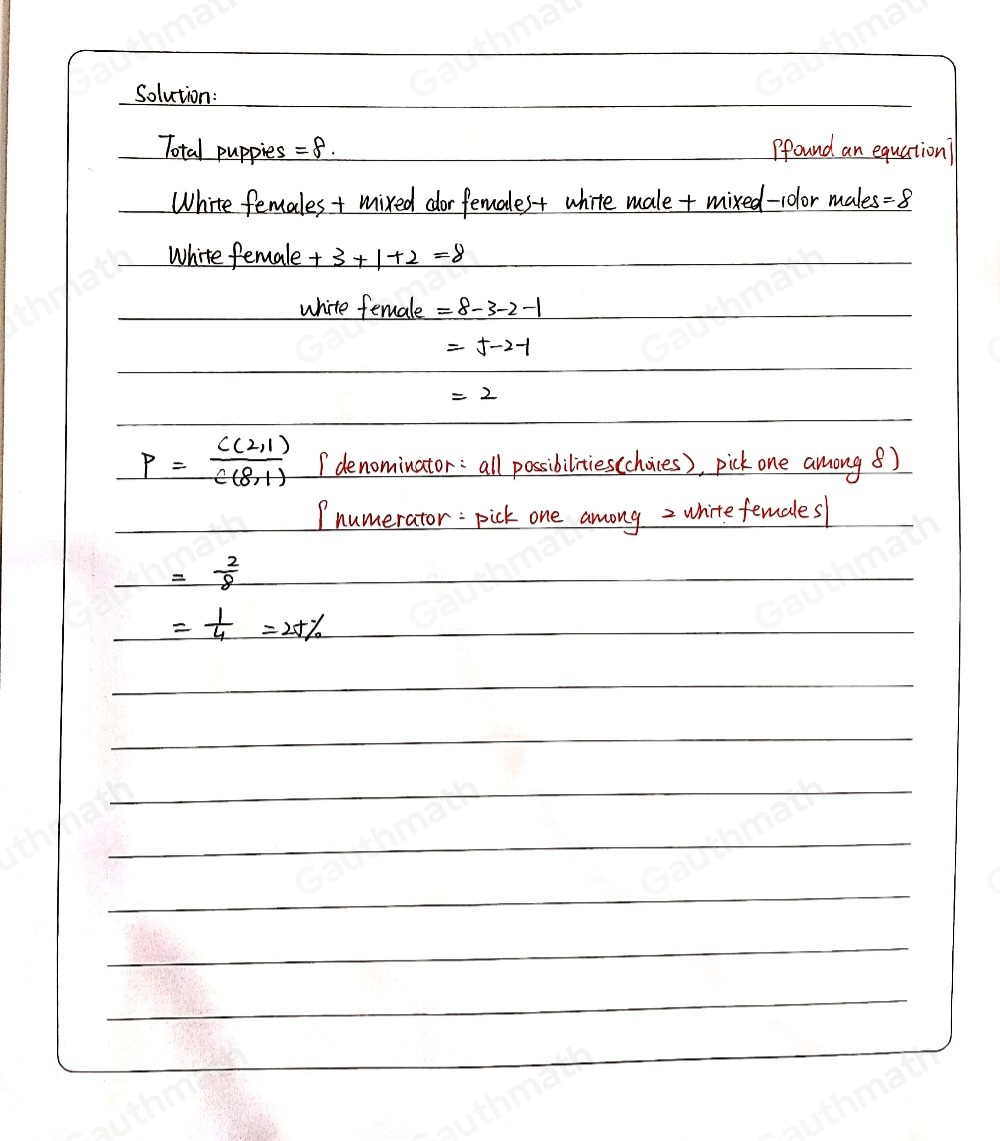 Solution:
Total puppies = 8.
[found an equation]
White females + mixed color females + white male + mixed-color males = 8
White female + 3 + 1 + 2 = 8
white female = 8-3-2-1
= 5-2-1
= 2
P = C(2,1)/C(8,1) [denominator: all possibilities(choices), pick one among 8)
[numerator: pick one among 2 white females]
= 2/8
= 1/4 = 25%
Gauthmath